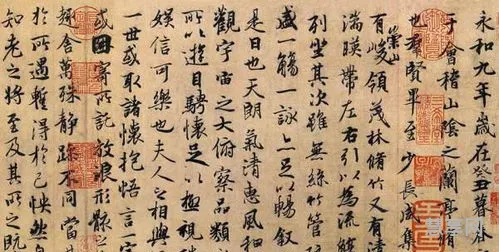 永和九年歲在癸丑暮
于會稽山陰之蘭亭
也羣賢畢至少長咸集
有崇山峻領茂林脩竹又有清
湍暎帶左右引以為流
列坐其次雖無絲竹管
盛一觴一詠亦足以暢敘
是日也天朗氣清惠風和
觀宇宙之大俯察品類
所以遊目騁懷足以極視
娛信可樂也夫人之相與
一世或取諸懷抱悟言
或因寄所託放浪形骸之
趣舍萬殊靜躁不同當
於所遇蹔得於己怏然
知老之將至及其所之既